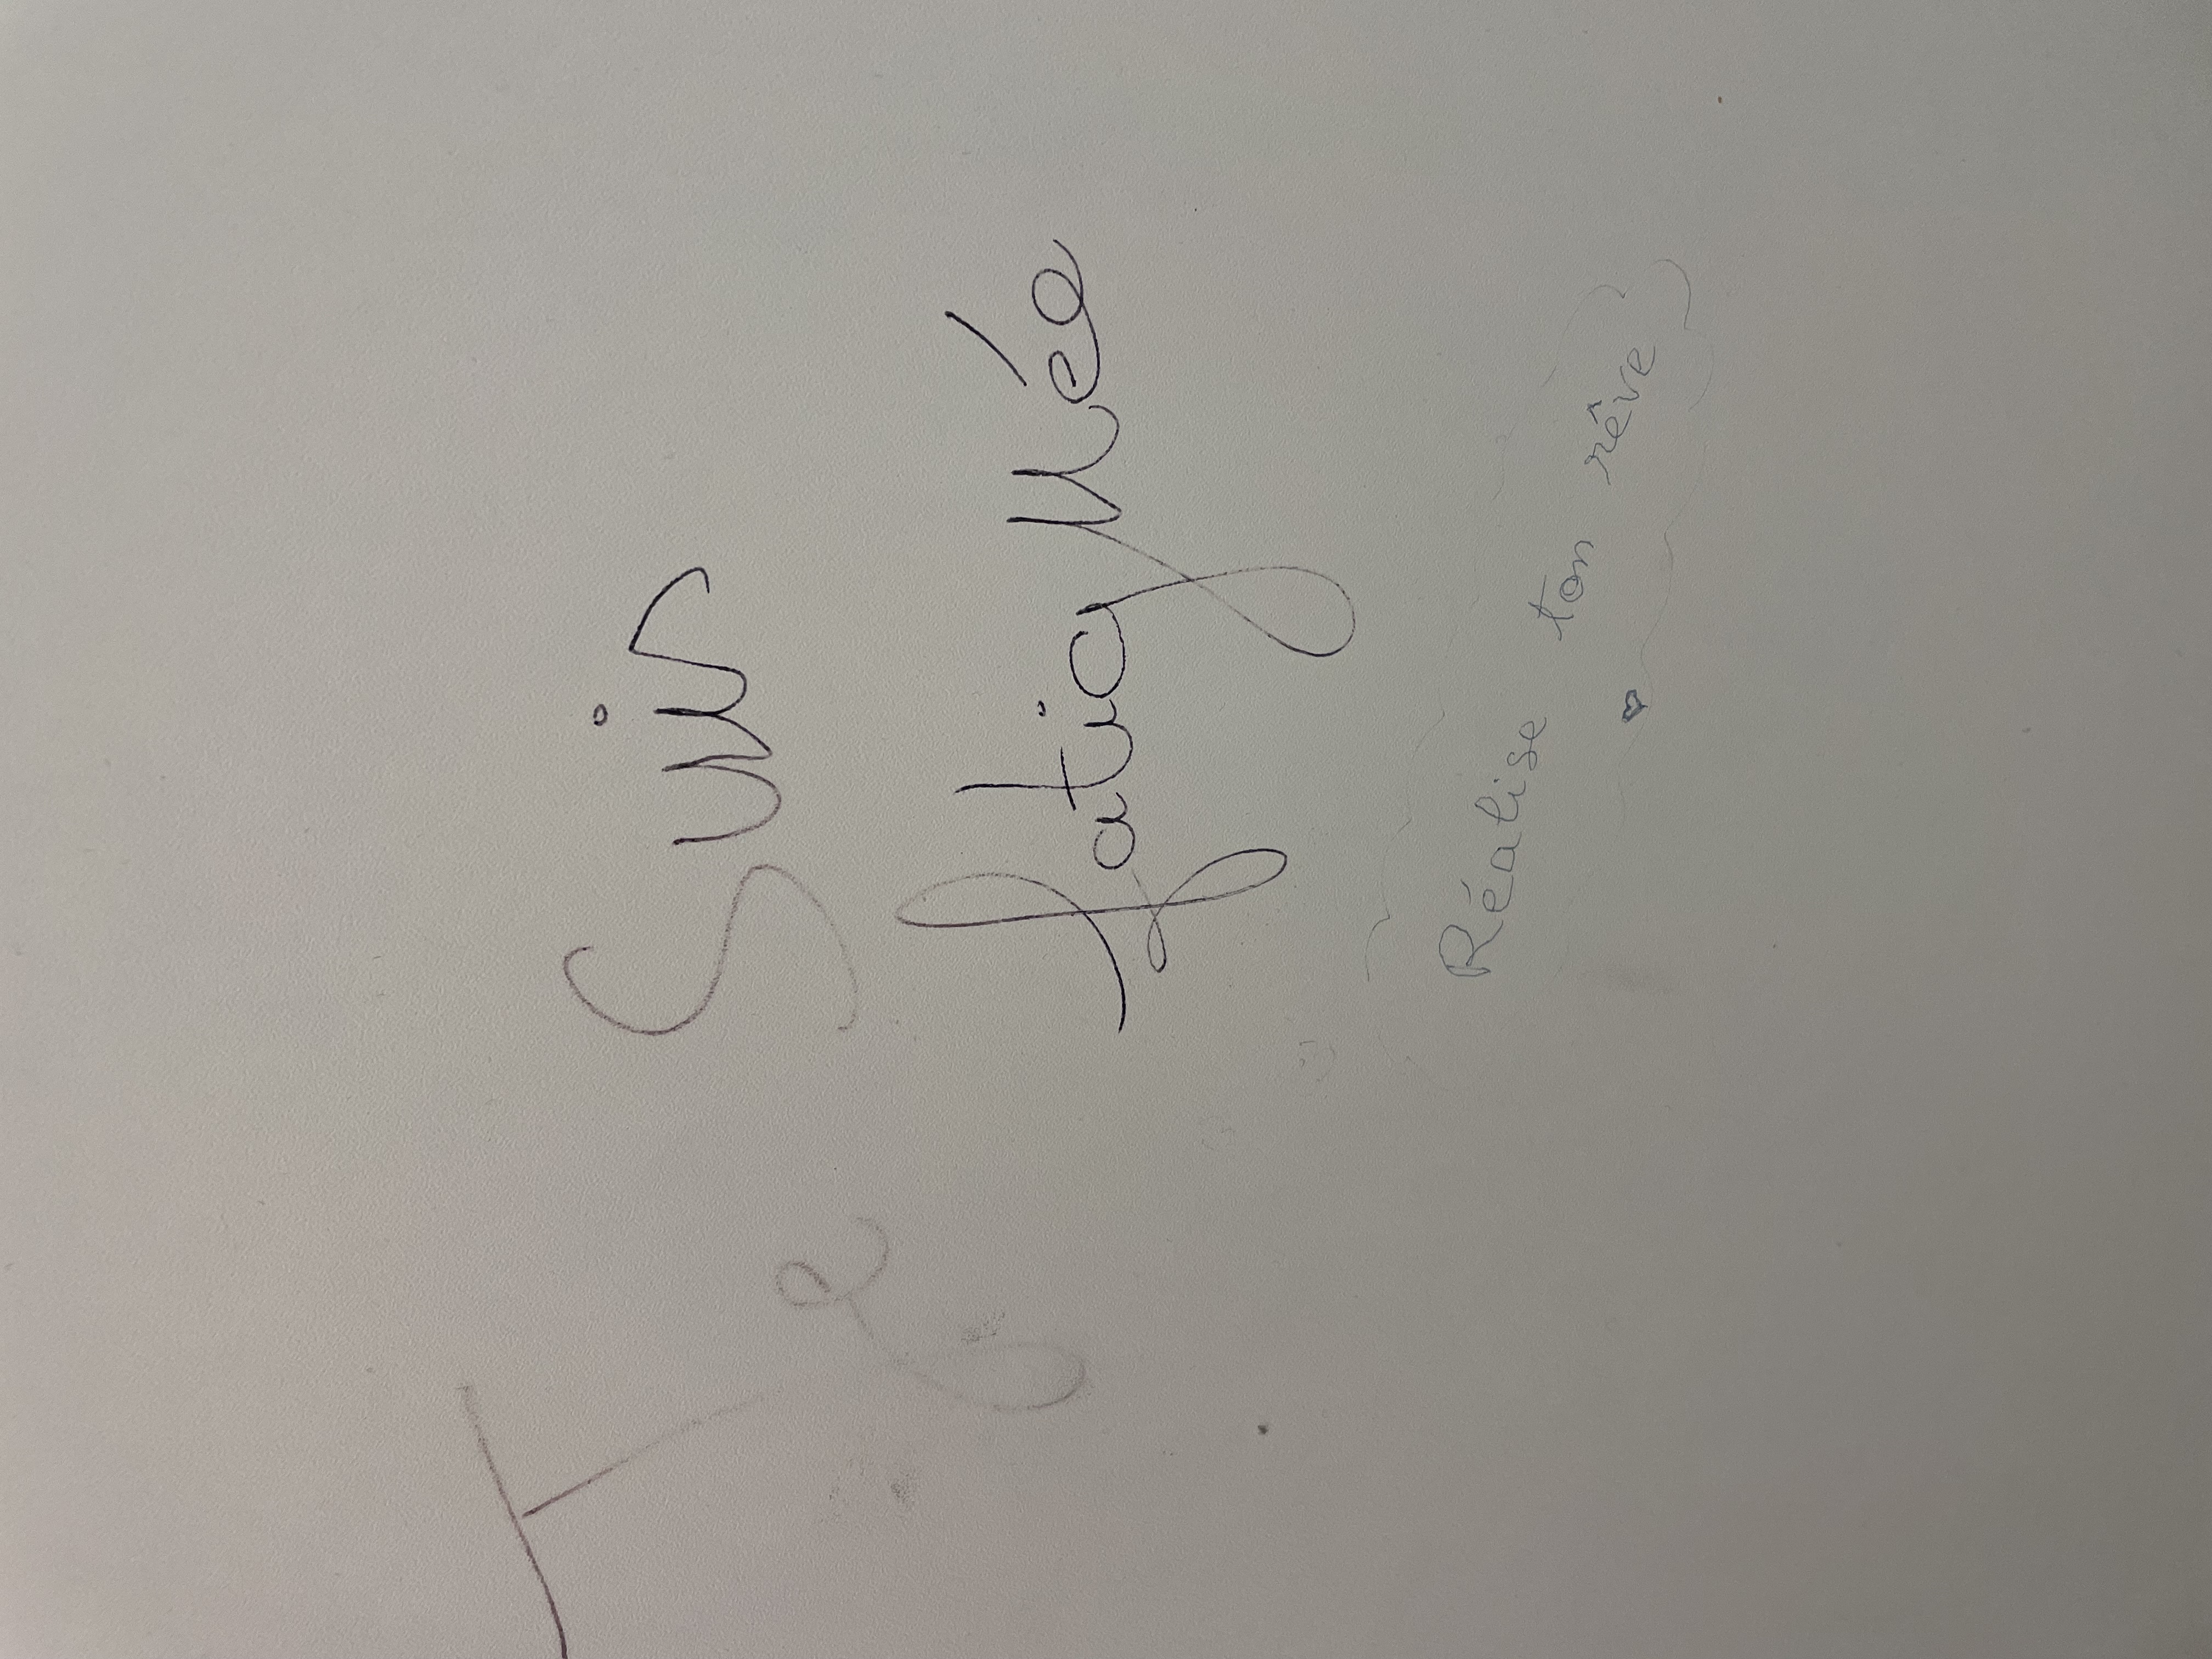 Je Suis
fatiguée
Réalise ton rêve